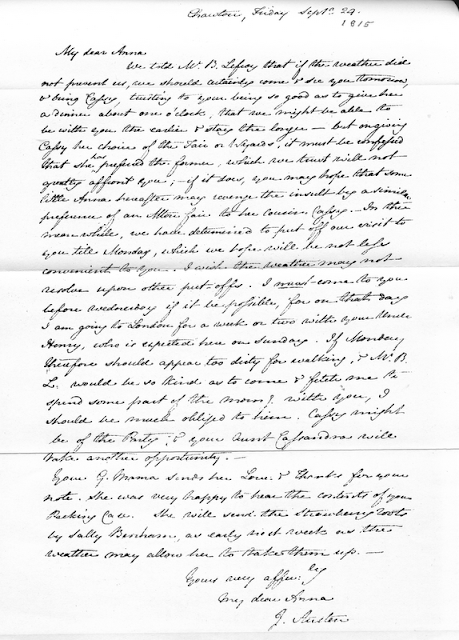 Chawton, Friday Septr. 29.
1815
My dear Anna
We told Mr. B. Lefroy that if the weather did
not prevent us, we should certainly come & see you tomorrow,
& bring Cassy, trusting to your being so good as to give her
a dinner about one o'clock, that we might be able to
be with you the earlier & stay the longer — but on giving
Cassy her choice of the Fair or Wyards, it must be confessed
that she has preferred the former, which we trust will not
greatly affront you; – if it does, you may hope that some
little Anna hereafter may revenge the insult by a similar
preference of an Alton fair to her Cousin Cassy. – In the
mean while, we have determined to put off our visit to
you till Monday, which we hope will be not less
convenient to You. – I wish the weather may not
resolve upon other put offs. I must come to you
before Wednesday if it be possible, for on that day
I am going to London for a week or two with your Uncle
Henry, who is expected here on Sunday. If Monday
therefore should appear too dirty for walking, & Mr. B.
L. would be so kind as to come & fetch me to
spend some part of the morng. with you, I
should be much obliged to him. Cassy might
be of the Party, & your Aunt Cassandra will
take another opportunity. —
Your G. Mama sends her Love & Thanks for your
note. She was very happy to hear the contents of your
Packing Case. She will send the Strawberry roots
by Sally Benham, as early next week as the
weather may allow her to take them up. —
Yours very affec:ly
My dear Anna
J. Austen